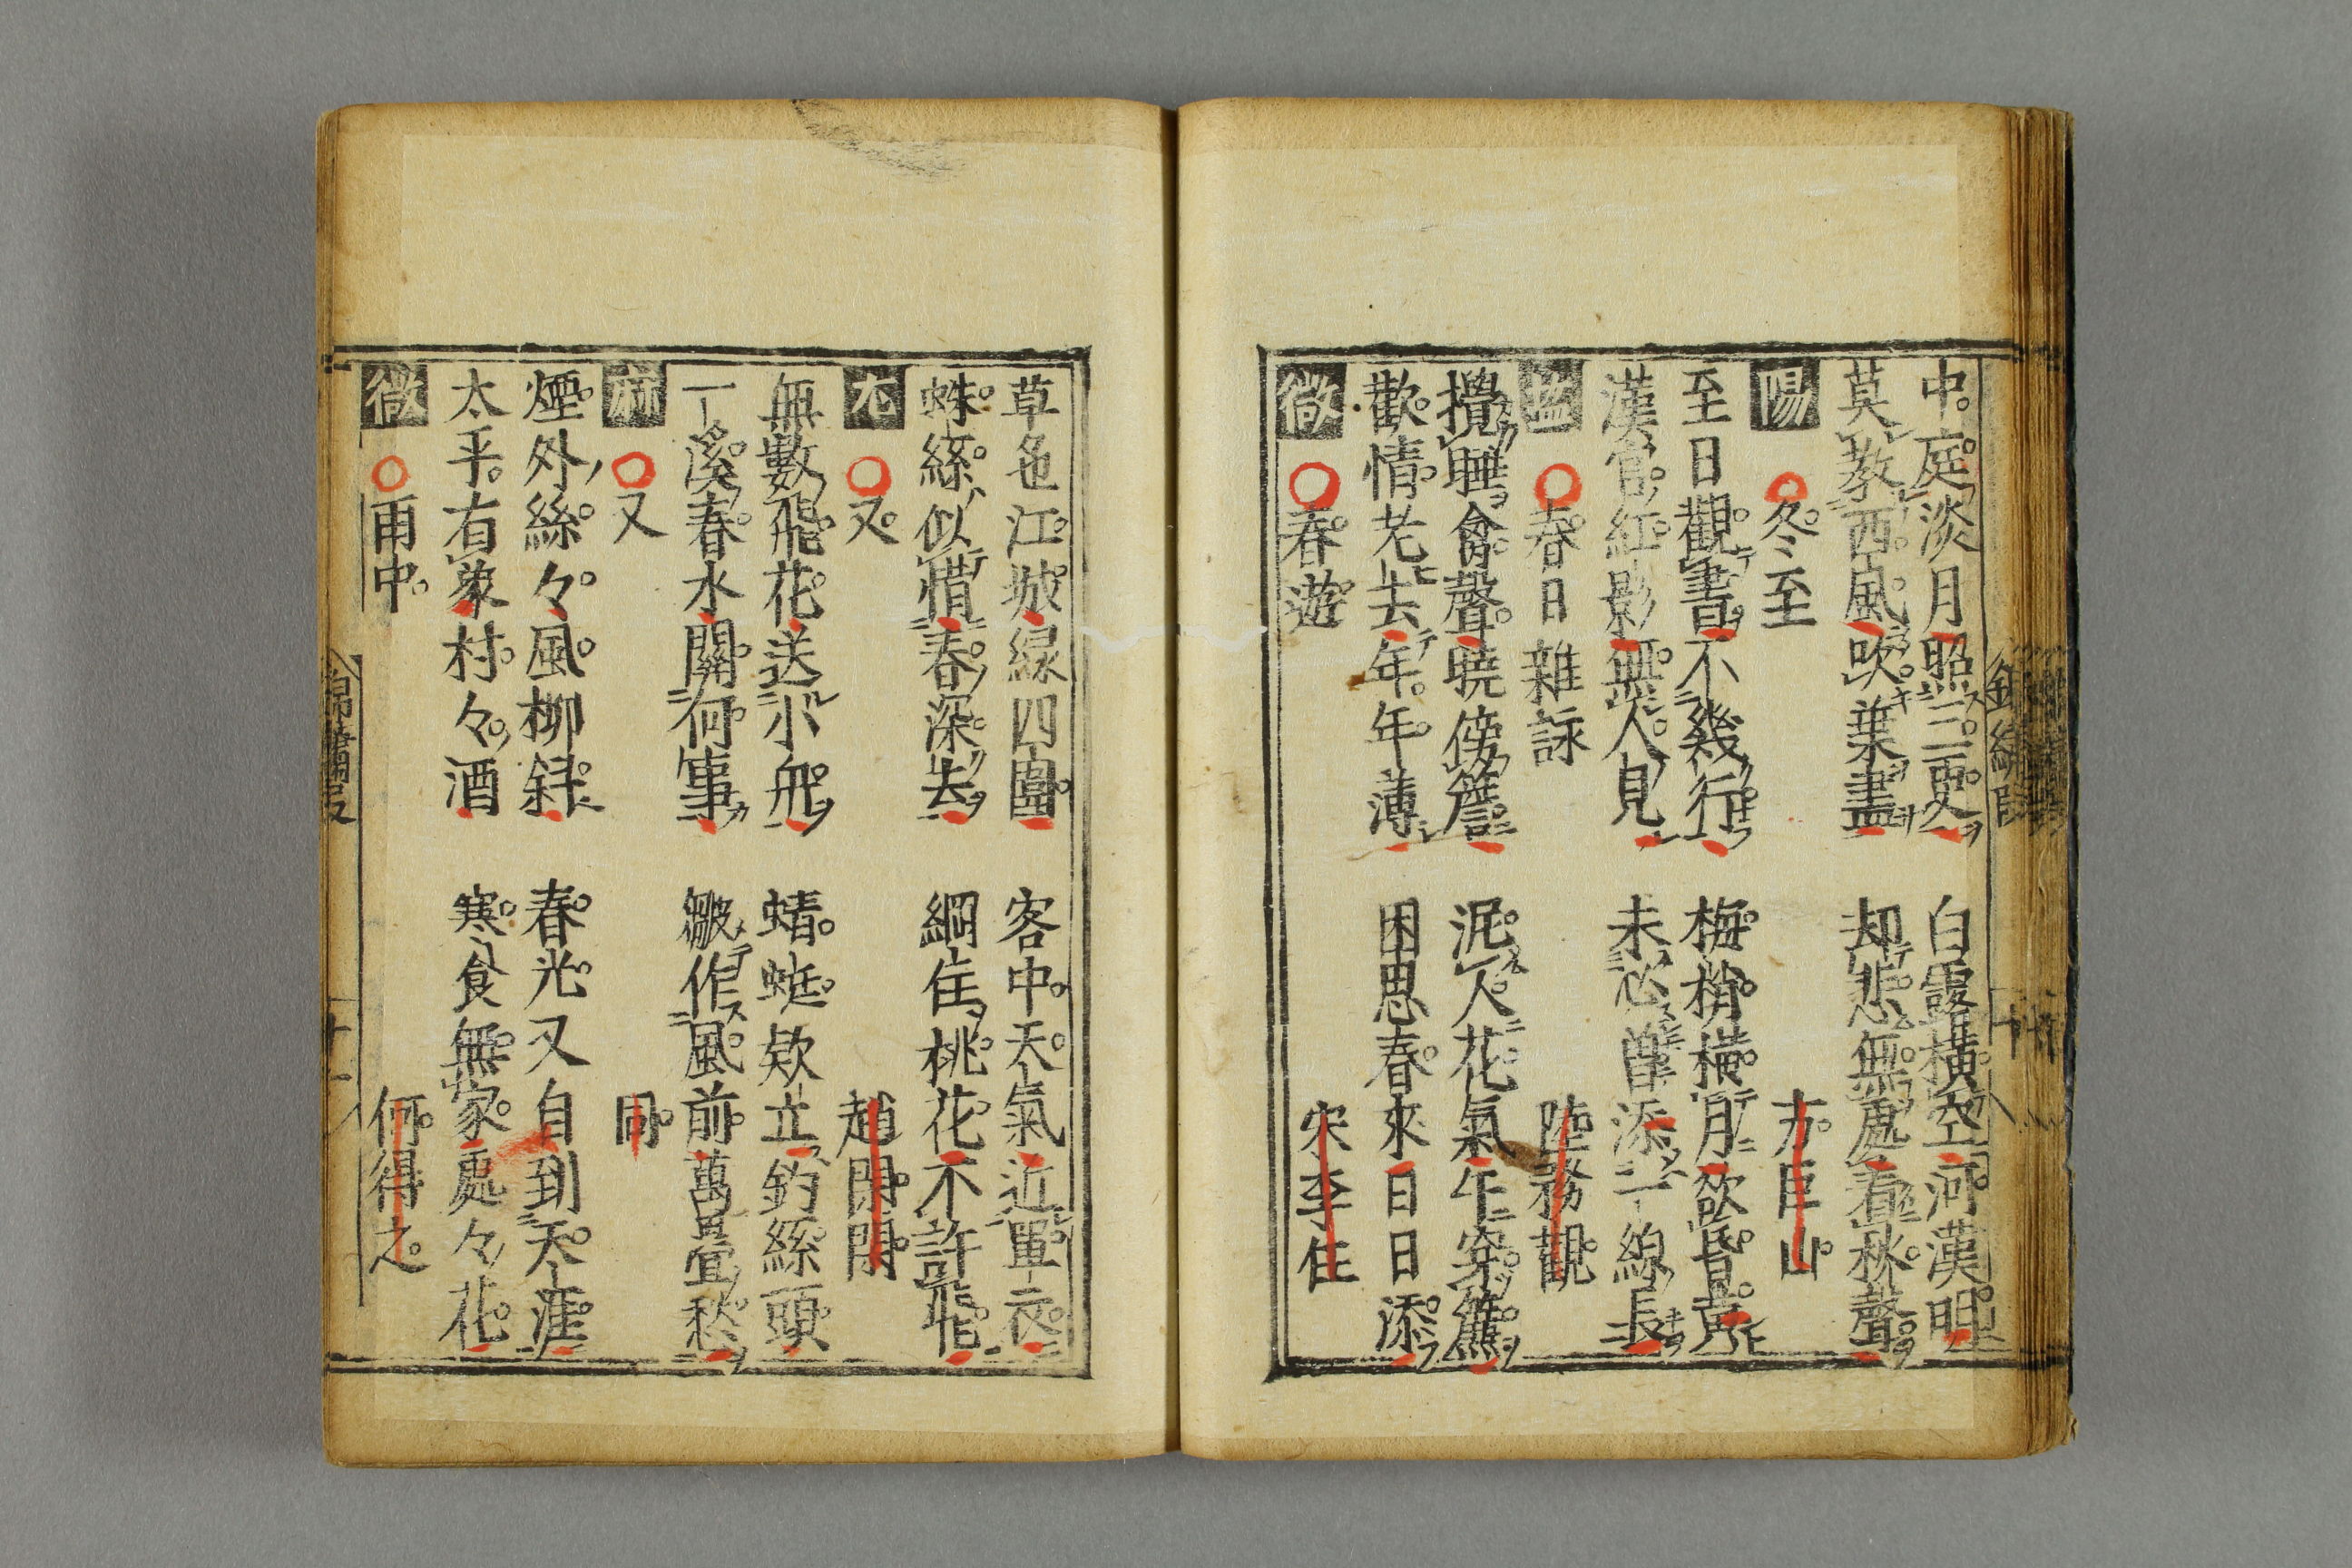 中庭淡月照三更 白露橫空河漢明
莫敎西風吹葉盡 却悲無處着秋聲
陽 冬至 方巨山
至日觀書不幾行 梅梢橫月欲昏黃
漢宮紅影無人見 未必曾添一線長
春日雜詠 陸務觀
攪睡禽聲曉傍簷 泥人花氣午穿簾
歡情老去年年薄 困思春來日日添
微 春遊 宋李住
草色江城綠四圍 客中天氣近單衣
蛛絲似惜春深去 網住桃花不許飛
尤 又 趙閑閑
無數飛花送小舟 蜻蜓欵立釣絲頭
一溪春水關何事 皺作風前萬疊愁
麻 又 同
煙外絲々風柳斜 春光又自到天涯
太平有象村々酒 寒食無家處々花
微 雨中 何得之
錦繡段
十一